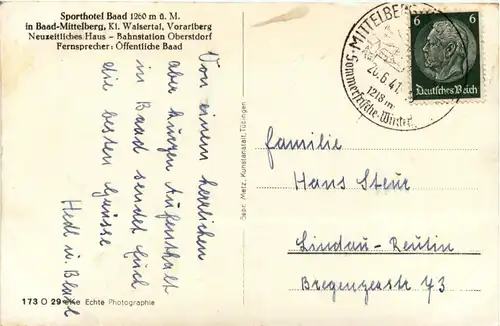 Sporthotel Baad 1260 m ü. M.
in Baad-Mittelberg, Kl. Walsertal, Vorarlberg
Neuzeitliches Haus - Bahnstation Oberstdorf
Fernsprecher: Öffentliche Baad
Von einem herrlichen
aber kurzen Aufenthalt
in Baad sendet Euch
die besten Grüsse
Hedi u.
173 O 29 Echte Photographie
Gebr. Metz, Kunstanstalt, Tübingen
MITTELBERG
26.6.41
1218 m
Sommerfrische-Winter
6 6
Deutsches Reich
Familie
Hans Steur
Lindau-Reutin
Bregenzerstr 43